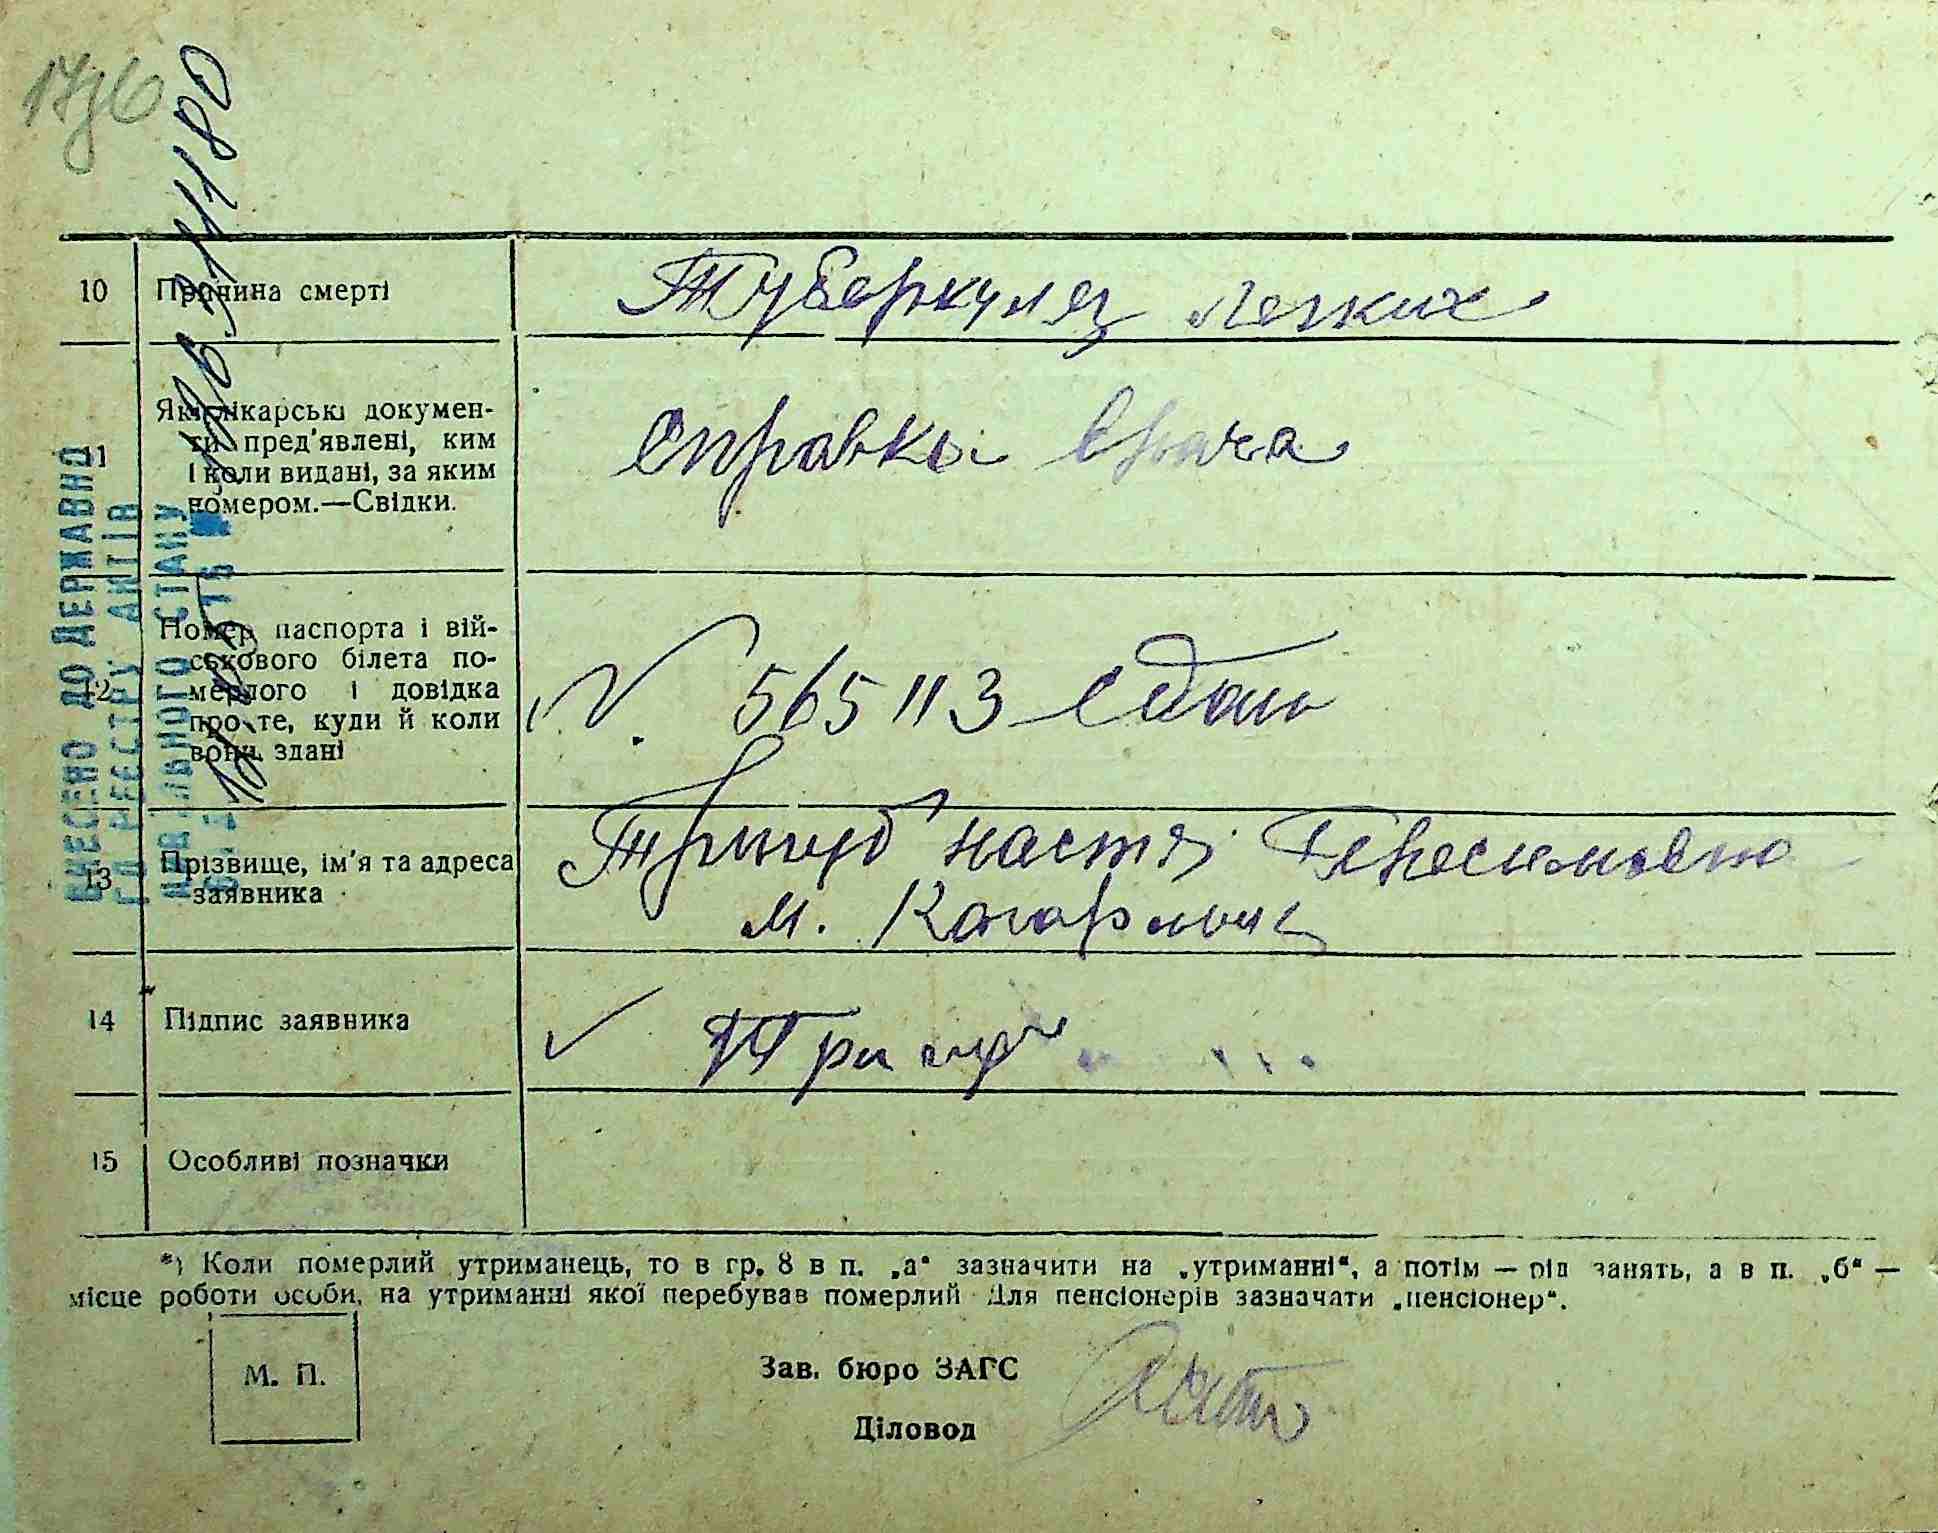 10 Причина смерті Туберкулез легких
11 Які лікарські докумен-
ти пред'явлені, ким
і коли видані, за яким
номером.—Свідки.
справка врача
12 Номер паспорта і вій-
ськового білета по-
мерлого і довідка
про те, куди й коли
вони здані
N. 565113 сдан
13 Прізвище, ім'я та адреса
заявника
Тригуб настя Герасимовно
м. Кагарлик
14 Підпис заявника Тригуб
15 Особливі позначки
*) Коли померлий утриманець, то в гр. 8 в п. „а" зазначити на „утриманні", а потім — рід занять, а в п. „б" —
місце роботи особи, на утриманні якої перебував померлий Для пенсіонерів зазначати „пенсіонер".
М. П.
Зав. бюро ЗАГС
Діловод
ВНЕСЕНО ДО ДЕРЖАВНО
ГО РЕЄСТРУ АКТІВ
СТАНУ